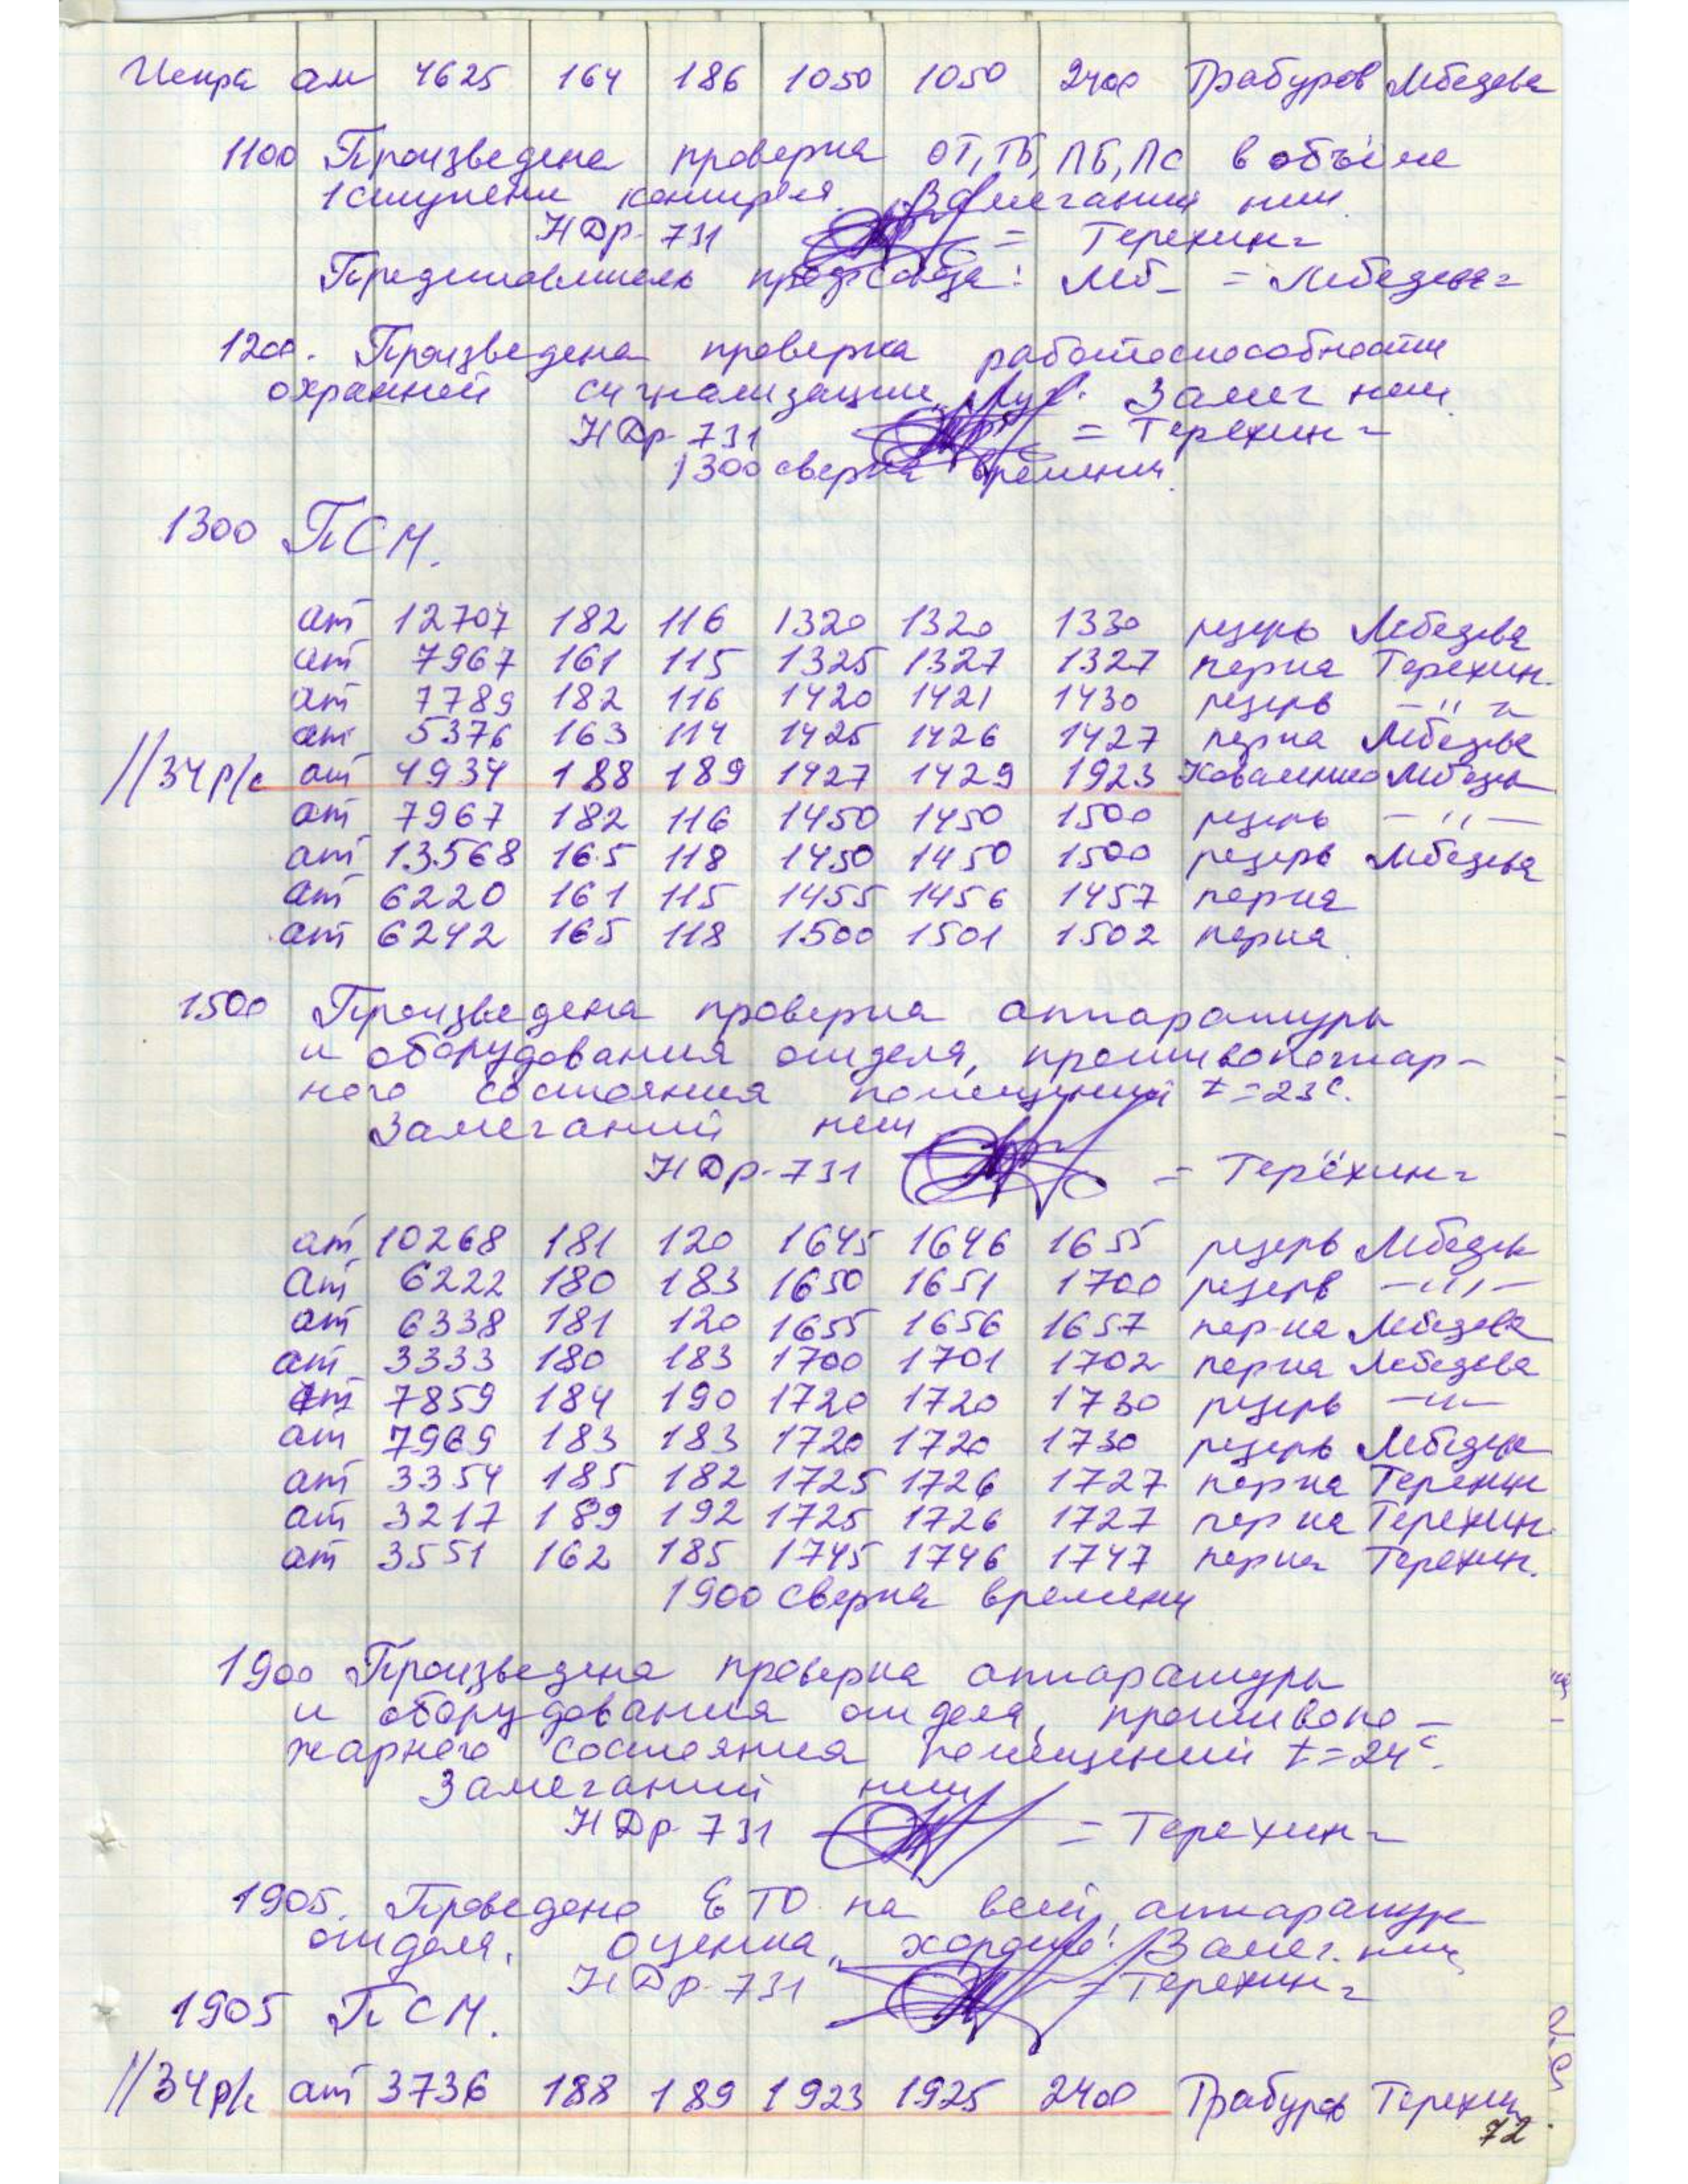 Искра ат 4625 164 186 1050 1050 2400 Грабуров Лебедева
1100 Произведена проверка ОТ, ТБ, ПБ, ПС в объёме
1 ступени контроля. Замечаний нет.
НДр-731 = Терехин=
Представитель профсоюза: Леб- = Лебедева=
1200. Произведена проверка работоспособности
охранной сигнализации „Луч". Замеч нет.
НДр-731 = Терехин=
1300 сверка времени.
1300 ПСМ.
ат 12707 182 116 1320 1320 1330 резерв Лебедева
ат 7967 161 115 1325 1327 1327 перна Терехин.
ат 7789 182 116 1420 1421 1430 резерв -"-
ат 5376 163 114 1425 1426 1427 перна Лебедева
//34 р/с ат 4934 188 189 1427 1429 1923 Коваленко Лебедева
ат 7967 182 116 1450 1450 1500 резерв -"-
ат 13568 165 118 1450 1450 1500 резерв Лебедева
ат 6220 161 115 1455 1456 1457 перна
ат 6242 165 118 1500 1501 1502 перна.
1500 Произведена проверка аппаратуры
и оборудования отдела, противопожар-
ного состояния помещений t=23с.
Замечаний нет
НДр-731 = Терёхин=
ат 10268 181 120 1645 1646 1655 резерв Лебедев
ат 6222 180 183 1650 1651 1700 резерв -"-
ат 6338 181 120 1655 1656 1657 пер-на Лебедева
ат 3333 180 183 1700 1701 1702 перна Лебедева
ат 7859 184 190 1720 1720 1730 резерв -"-
ат 7969 183 183 1720 1720 1730 резерв Лебедева
ат 3354 185 182 1725 1726 1727 перна Терехин
ат 3217 189 192 1725 1726 1727 перна Терехин.
ат 3551 162 185 1745 1746 1747 перна Терехин.
1900 Сверка времени
1900 Произведена проверка аппаратуры
и оборудования отдела, противопо-
жарного состояния помещений t=24с.
Замечаний нет
НДр-731 = Терехин=
1905. Проведено ЕТО на всей аппаратуре
отдела. Оценка „хорошо". Замеч. нет
НДр-731 = Терехин=
1905 ПСМ.
//34 р/с ат 3736 188 189 1923 1925 2400 Грабуров Терехин
72